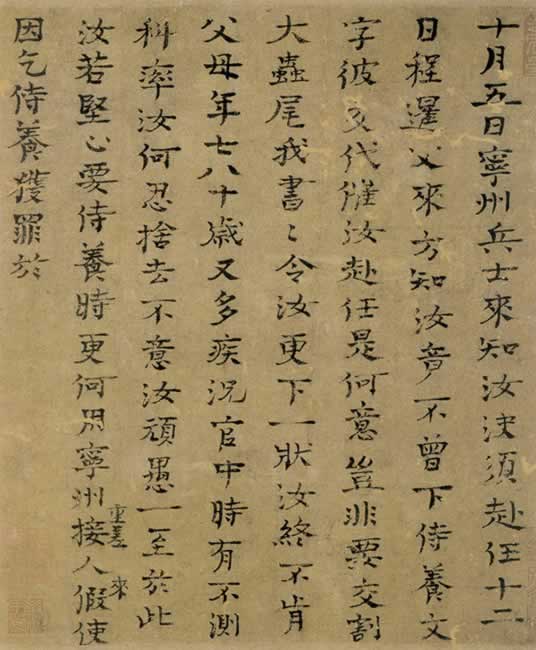 十月五日寧州兵士來知汝決須赴任十二
日程暹父來方知汝竟不曾下侍養文
字彼交代催汝赴任是何意豈非要交割
大蟲尾我書〻令汝更下一狀汝終不肯
父母年七八十歲又多疾況官中時有不測
科率汝何忍捨去不意汝頑愚一至於此
重差 來
汝若堅心要侍養時更何用寧州接人假使
因乞侍養獲罪於